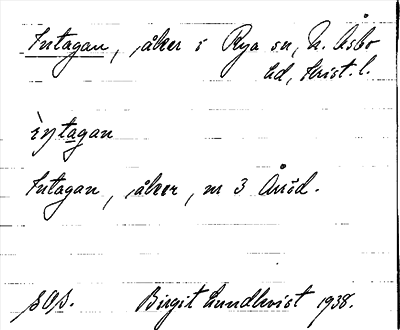 Intagan, åker i Rya sn, N. Åsbo
hd, Krist. l.
Intagan, åker, nr 3 Åröd.
sOs. Birgit Lundkvist 1938.